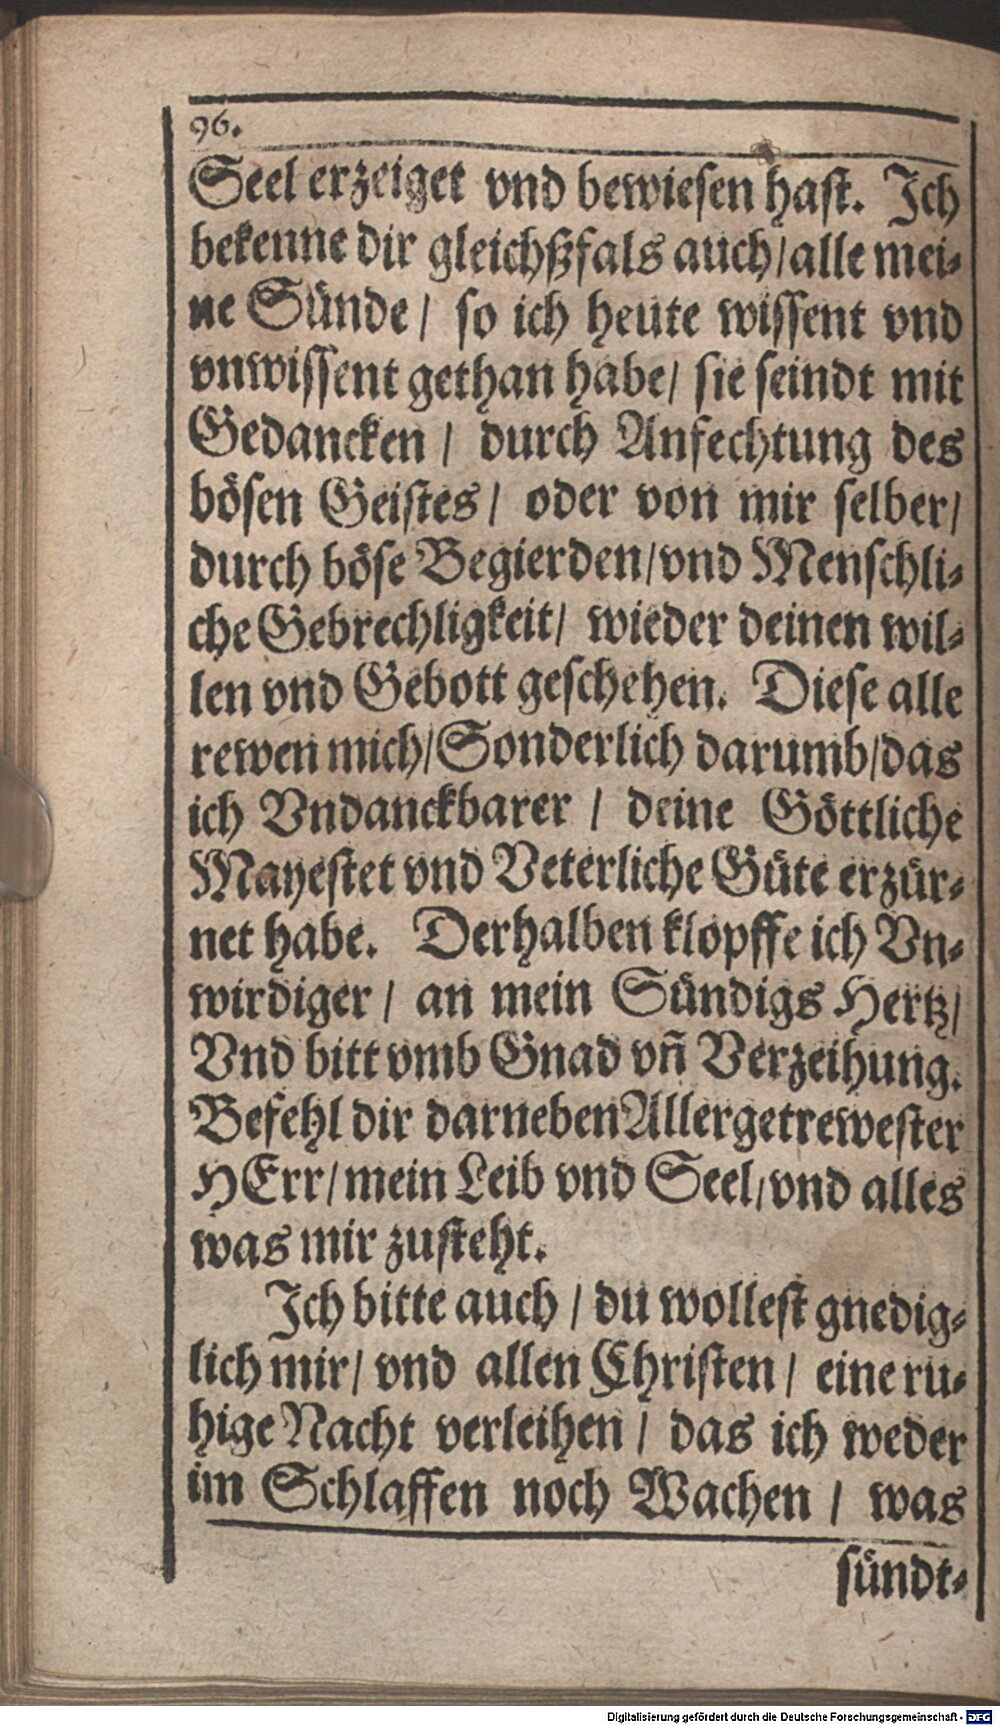 96.
Seel erzeiget vnd bewiesen hast. Ich
bekenne dir gleichßfals auch/alle mei-
ne Sünde/ so ich heute wissent vnd
vnwissent gethan habe/ sie seindt mit
Gedancken/ durch Anfechtung des
bösen Geistes/ oder von mir selber/
durch böse Begierden/vnd Menschli-
che Gebrechligkeit/ wieder deinen wil-
len vnd Gebott geschehen. Diese alle
rewen mich/Sonderlich darumb/das
ich Vndanckbarer/ deine Göttliche
Mayestet vnd Veterliche Güte erzür-
net habe. Derhalben klopffe ich Vn-
wirdiger/ an mein Sündigs Hertz/
Vnd bitt vmb Gnad vñ Verzeihung.
Befehl dir darneben Allergetrewester
HErr/mein Leib vnd Seel/vnd alles
was mir zusteht.
Ich bitte auch/ du wollest gnedig-
lich mir/ vnd allen Christen/ eine ru-
hige Nacht verleihen/ das ich weder
im Schlaffen noch Wachen/ was
sündt-
Digitalisierung gefördert durch die Deutsche Forschungsgemeinschaft - DFG